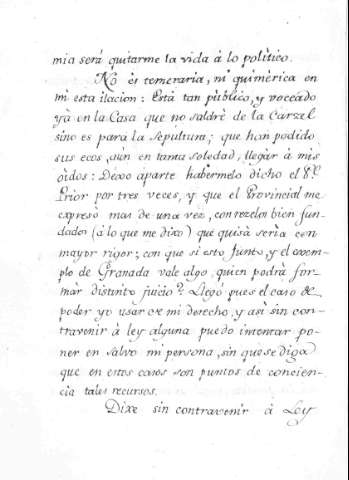 mia será quitarme la vida á lo político.
No és temeraria, ni quimèrica en
mi esta ilacion: Está tan pùblico, y voceado
yà en la Casa que no saldrè de la Carzel
sino es para la sepultura; que han podido
sus ecos, aùn en tanta soledad, llegàr à mis
oìdos: Dexo aparte habermelo dicho el P.
Prior por tres veces, y que el Provincial me
expresò mas de una vez, con rezelos bien fun-
dados (à lo que me dixo) que quizà serìa con
mayor rigor; con que si esto junto, y el exem-
plo de Granada vale algo, quien podrà for-
màr distinto juicio? Llegó pues el caso de
poder yo usar de mi derecho, y asì sin con-
travenir à ley alguna puedo intentar po-
ner en salvo mi persona, sin que se diga
que en estos casos son puntos de concien-
cia tales recursos.
Dixe sin contravenir à Ley